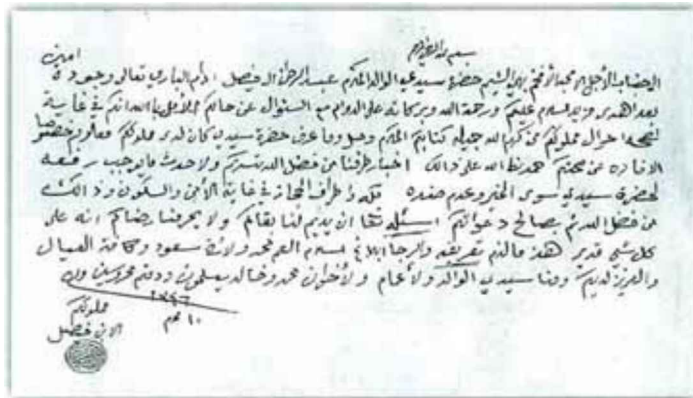 بسم الله الرحمن الرحيم
امين
الى جناب الأجل الامجد الأفخم بهي الشيم حضرة سيدي الوالد المكرم عبد الرحمن الفيصل ادام الباري تعالى وجوده
بعد اهدى مزيد السلام عليكم ورحمة الله وبركاته على الدوام مع السئوال عن حالكم لا زلتم بها احوالكم في غاية
احوال مملوككم من كرم الله جميله كتابكم المكرم وصل وما عرف حضرة سيدي كان لدى مملوككم معلوم خصوصا
الافاده عن صحتكم حمدنا الله على ذالك اخبار طرفنا من فضل الله تسركم ولا حدث ما يوجب رفعه
لحضرة سيدي سوى الخير وعدم ضده اطراف الحجاز في غاية الأمن والسكون وذالك
من فضل الله ثم بصالح دعواتكم اسئله تعالى ان يديم لنا بقاكم ولا يحرمنا رضاكم انه على
كل شي قدير هذا ما لزم تعريفه والرجا ابلاغ السلام العم محمد والاخ سعود وكافة العيال
والعزيز لديكم ومنا سيدي الوالد والأعمام والأخوان محمد وخالد يسلمون ودمتم محروسين
١٠ محرم
مملوككم
الابن فيصل